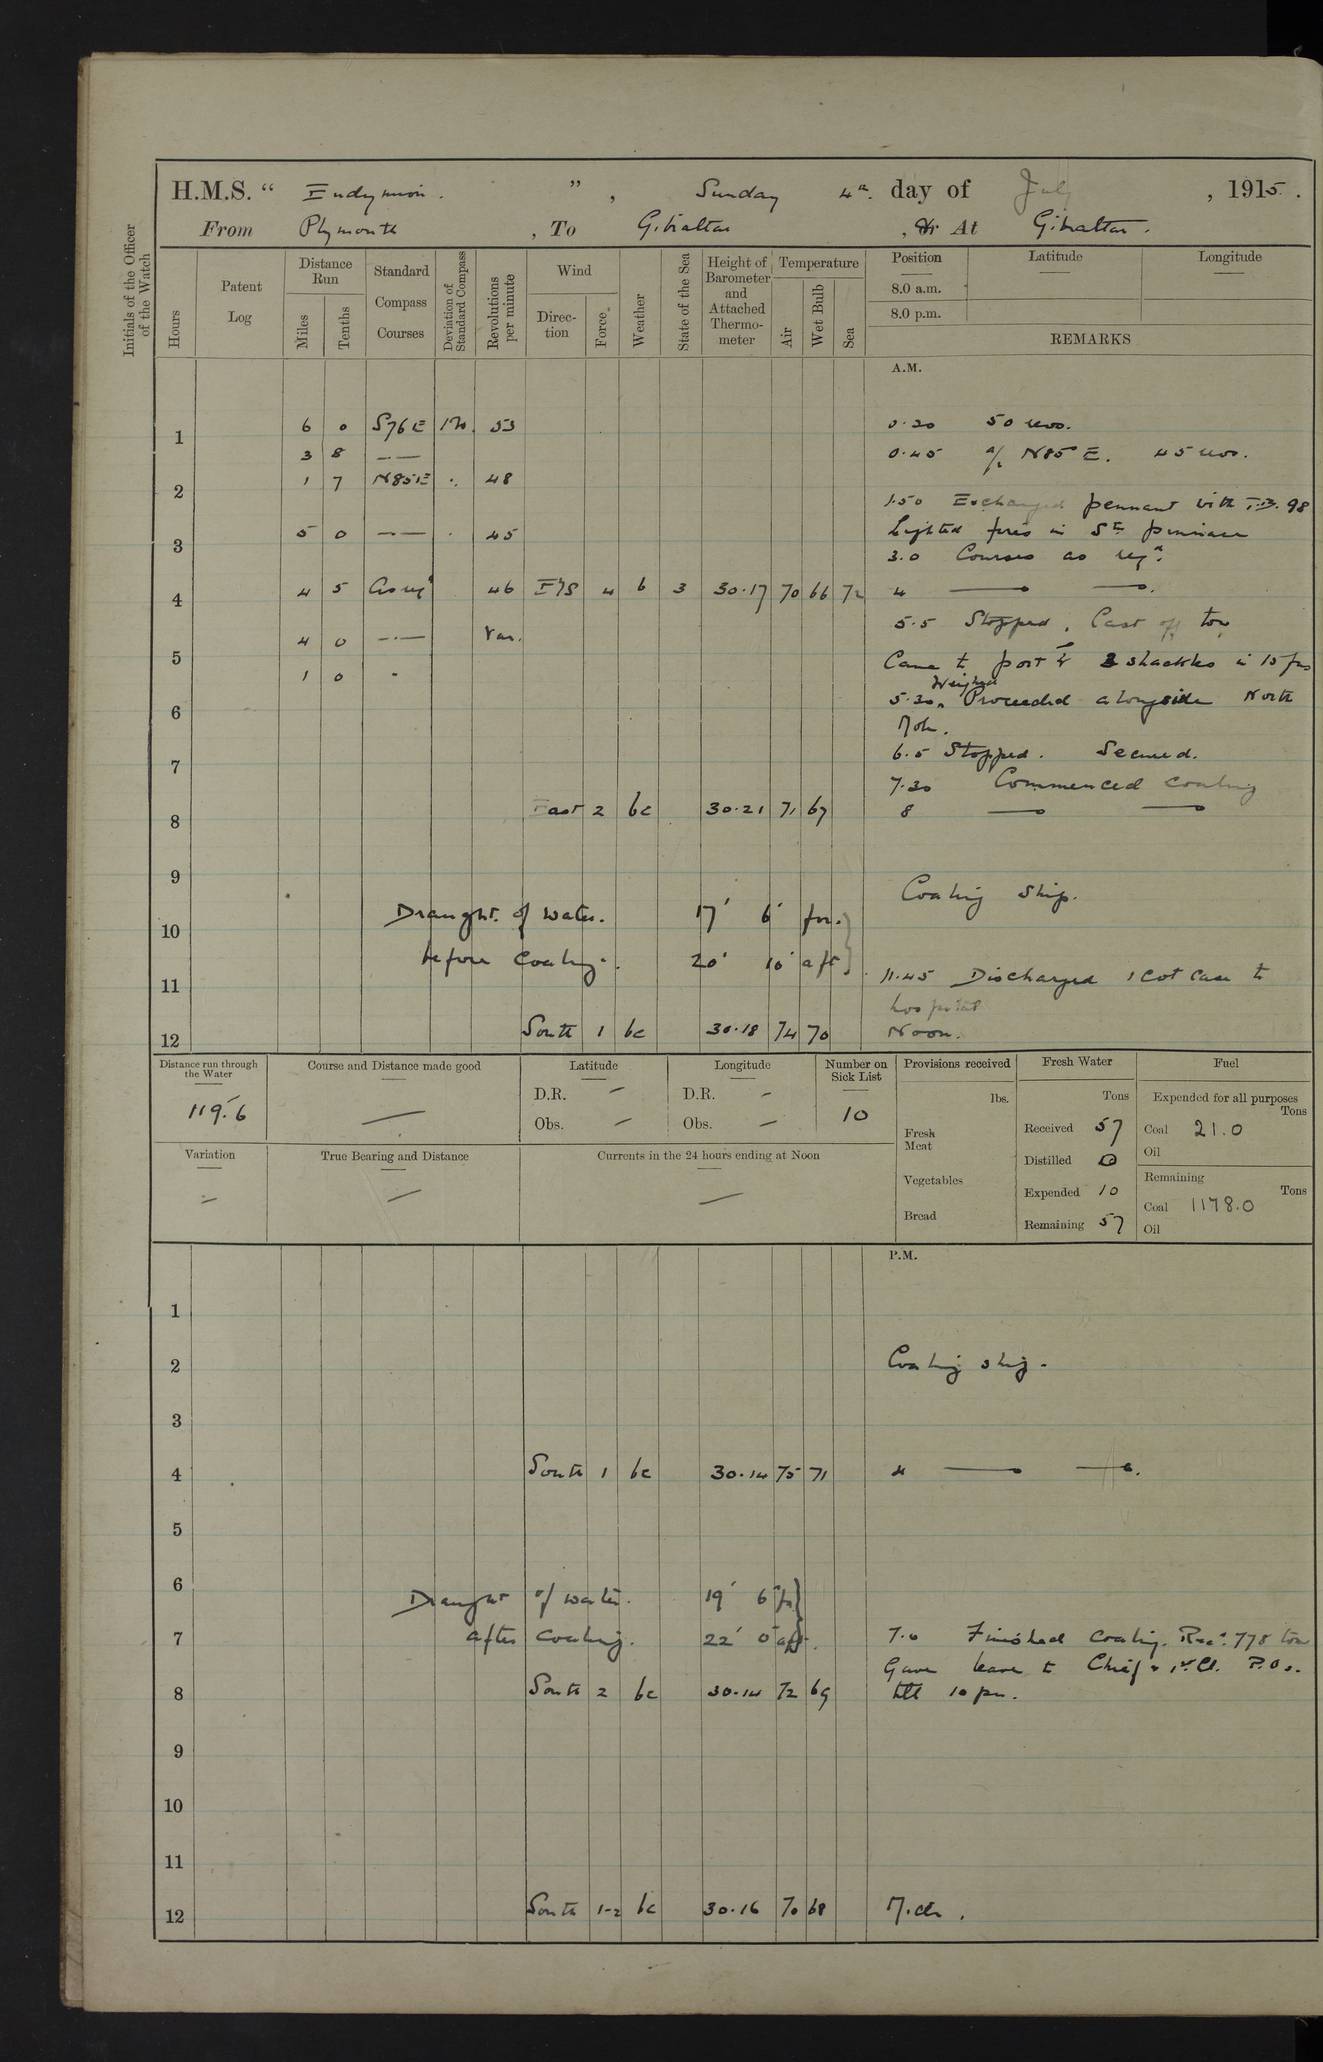 H.M.S. " Endymion. ", Sunday 4th. day of July, 1915.
From Plymouth, To Gibraltar, or At Gibraltar.
Initials of the Officer of the Watch
Hours
Patent Log
Distance Run
Miles
Tenths
Standard Compass Courses
Deviation of Standard Compass
Revolutions per minute
Wind
Direction
Force
Weather
State of the Sea
Height of Barometer and Attached Thermometer
Temperature
Air
Wet Bulb
Sea
Position Latitude Longitude
8.0 a.m.
8.0 p.m.
REMARKS
A.M.
1 6 0 S76E 53 0.20 50 revs.
3 8 —·— 0.45 a/c N85E. 45 revs.
2 1 7 N85E 48
1.50 Exchanged pennant with T.B. 98
3 5 0 —·— 45 Lighted fires in Sm pinnace
3.0 Courses as reqd.
4 4 5 As reqd 46 E'ly 4 b 3 30.17 70 66 72 4
5.5 Stopped. Cast off tow
5 4 0 —·— Var. Came to port 3 shackles in 15 fms
6 1 0 5.30 Weighed Proceeded alongside North
Mole.
7 6.5 Stopped. Secured.
7.30 Commenced coaling
8 East 2 bc 30.21 71 67 8
9
Coaling ship.
10 Draught of water. 17' 6" for.
11 before coaling. 20' 10" aft
11.45 Discharged 1 cot case to
hospital
12 South 1 bc 30.18 74 70 Noon.
Distance run through the Water
119.6
Course and Distance made good
—
Latitude
D.R. —
Obs. —
Longitude
D.R. —
Obs. —
Number on Sick List
10
Provisions received
lbs.
Fresh Meat
Vegetables
Bread
Fresh Water
Tons
Received 57
Distilled 0
Expended 10
Remaining 57
Fuel
Expended for all purposes
Tons
Coal 21.0
Oil
Remaining
Tons
Coal 1178.0
Oil
Variation
—
True Bearing and Distance
—
Currents in the 24 hours ending at Noon
—
P.M.
1
2 Coaling ship.
3
4 South 1 bc 30.14 75 71 4
5
6 Draught of water. 19' 6" for
7 after coaling. 22' 0" aft. 7.0 Finished coaling. Recd. 778 tons
Gave leave to Chief & 1st Cl. P.O.s.
8 South 2 bc 30.14 72 69 till 10 pm.
9
10
11
12 South 1-2 bc 30.16 70 68 Midt.